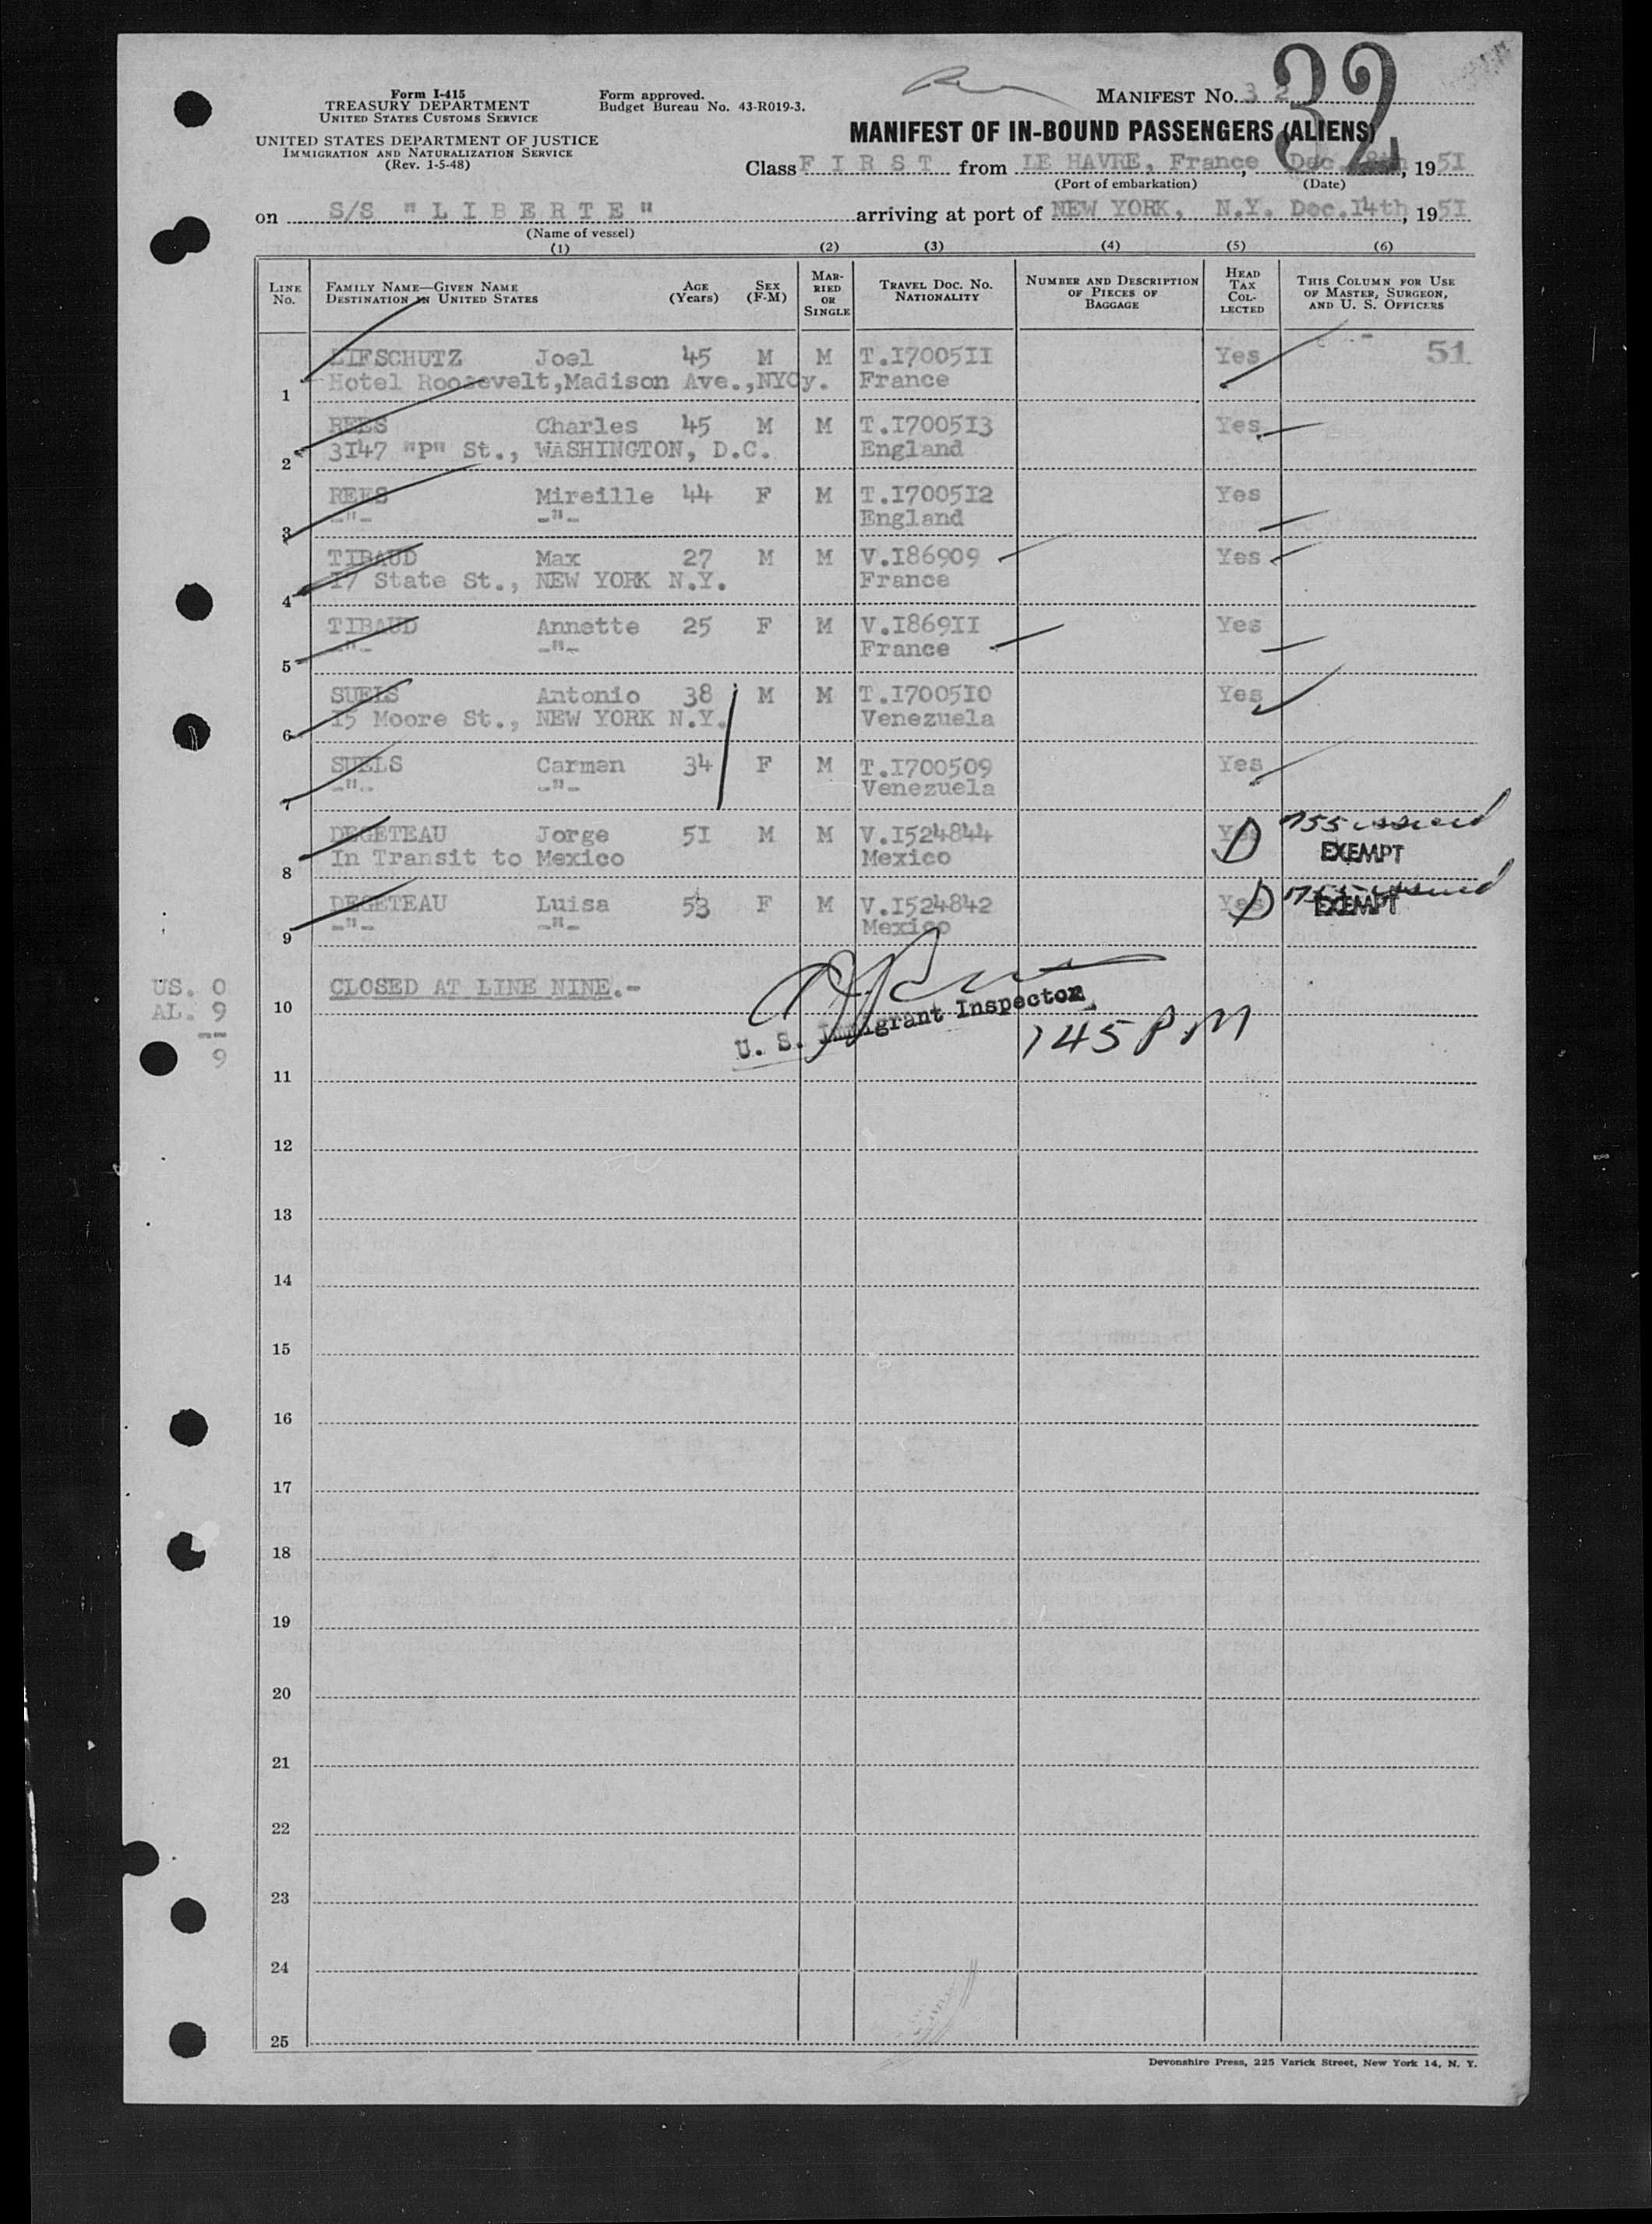 32
Form I-415
TREASURY DEPARTMENT
UNITED STATES CUSTOMS SERVICE
UNITED STATES DEPARTMENT OF JUSTICE
IMMIGRATION AND NATURALIZATION SERVICE
(Rev. 1-5-48)
Form approved.
Budget Bureau No. 43-R019-3.
MANIFEST NO. 3 2
MANIFEST OF IN-BOUND PASSENGERS (ALIENS)
Class F I R S T from LE HAVRE, France, Dec. 8th, 1951
(Port of embarkation) (Date)
on S/S "L I B E R T E" arriving at port of NEW YORK, N.Y. Dec.14th, 1951
(Name of vessel)
(1) (2) (3) (4) (5) (6)
LINE No. FAMILY NAME—GIVEN NAME DESTINATION IN UNITED STATES AGE (Years) SEX (F-M) MARRIED OR SINGLE TRAVEL DOC. NO. NATIONALITY NUMBER AND DESCRIPTION OF PIECES OF BAGGAGE HEAD TAX COLLECTED THIS COLUMN FOR USE OF MASTER, SURGEON, AND U. S. OFFICERS
LIFSCHUTZ Joel 45 M M T.I7005II Yes 51
1 Hotel Roosevelt,Madison Ave.,NYCy. France
REES Charles 45 M M T.I7005I3 Yes
2 3I47 "P" St., WASHINGTON, D.C. England
REES Mireille 44 F M T.I7005I2 Yes
3 -"- -"- England
TIBAUD Max 27 M M V.I86909 Yes
4 I7 State St., NEW YORK N.Y. France
TIBAUD Annette 25 F M V.I869II Yes
5 -"- -"- France
SUELS Antonio 38 M M T.I7005I0 Yes
6 I5 Moore St., NEW YORK N.Y. Venezuela
SUELS Carmen 34 F M T.I700509 Yes
7 -"- -"- Venezuela
DEGETEAU Jorge 5I M M V.I524844 Yes 755 issued
8 In Transit to Mexico Mexico EXEMPT
DEGETEAU Luisa 53 F M V.I524842 Yes 755 issued
9 -"- -"- Mexico EXEMPT
US. 0
AL. 9
--
9
10 CLOSED AT LINE NINE.-
U. S. Immigrant Inspector
145 PM
11
12
13
14
15
16
17
18
19
20
21
22
23
24
25
Devonshire Press, 225 Varick Street, New York 14, N. Y.